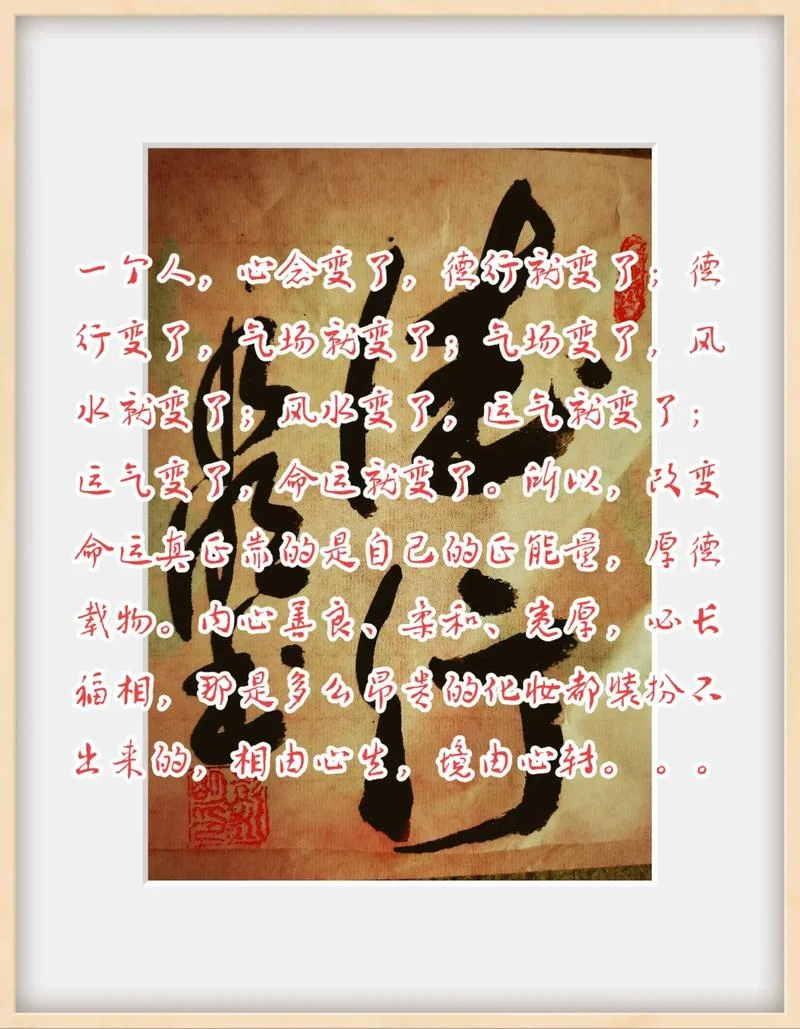 一个人，心念变了，德行就变了；德
行变了，气场就变了；气场变了，风
水就变了；风水变了，运气就变了；
运气变了，命运就变了。所以，改变
命运真正靠的是自己的正能量，厚德
载物。内心善良、柔和、宽厚，必长
福相，那是多么昂贵的化妆都装扮不
出来的，相由心生，境由心转。。。
德行